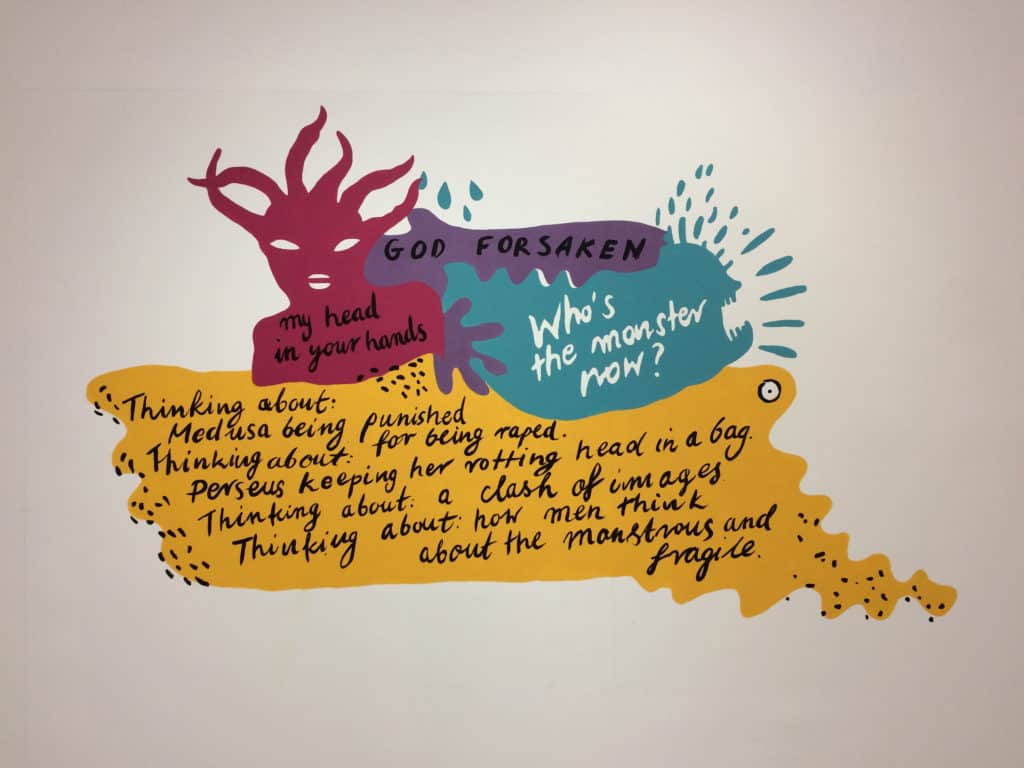 GOD FORSAKEN
my head
in your hands
Who's
the monster
now?
Thinking about:
Medusa being punished
for being raped.
Thinking about:
Perseus keeping her rotting head in a bag.
Thinking about: a clash of images
Thinking about: how men think
about the monstrous and
fragile.